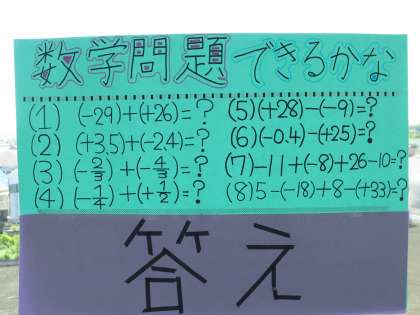 数学問題できるかな
(1) (-29)+(+26)=?
(2) (+3.5)+(-2.4)=?
(3) (-2/3)+(-4/3)=?
(4) (-1/4)+(+1/2)=?
(5) (+28)-(-9)=?
(6) (-0.4)-(+25)=?
(7) -11+(-8)+26-10=?
(8) 5-(-18)+8-(+33)=?
答え